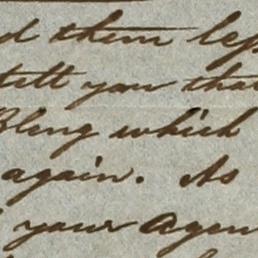 d them less
tell you that
Bleng which
again. As
your Agen